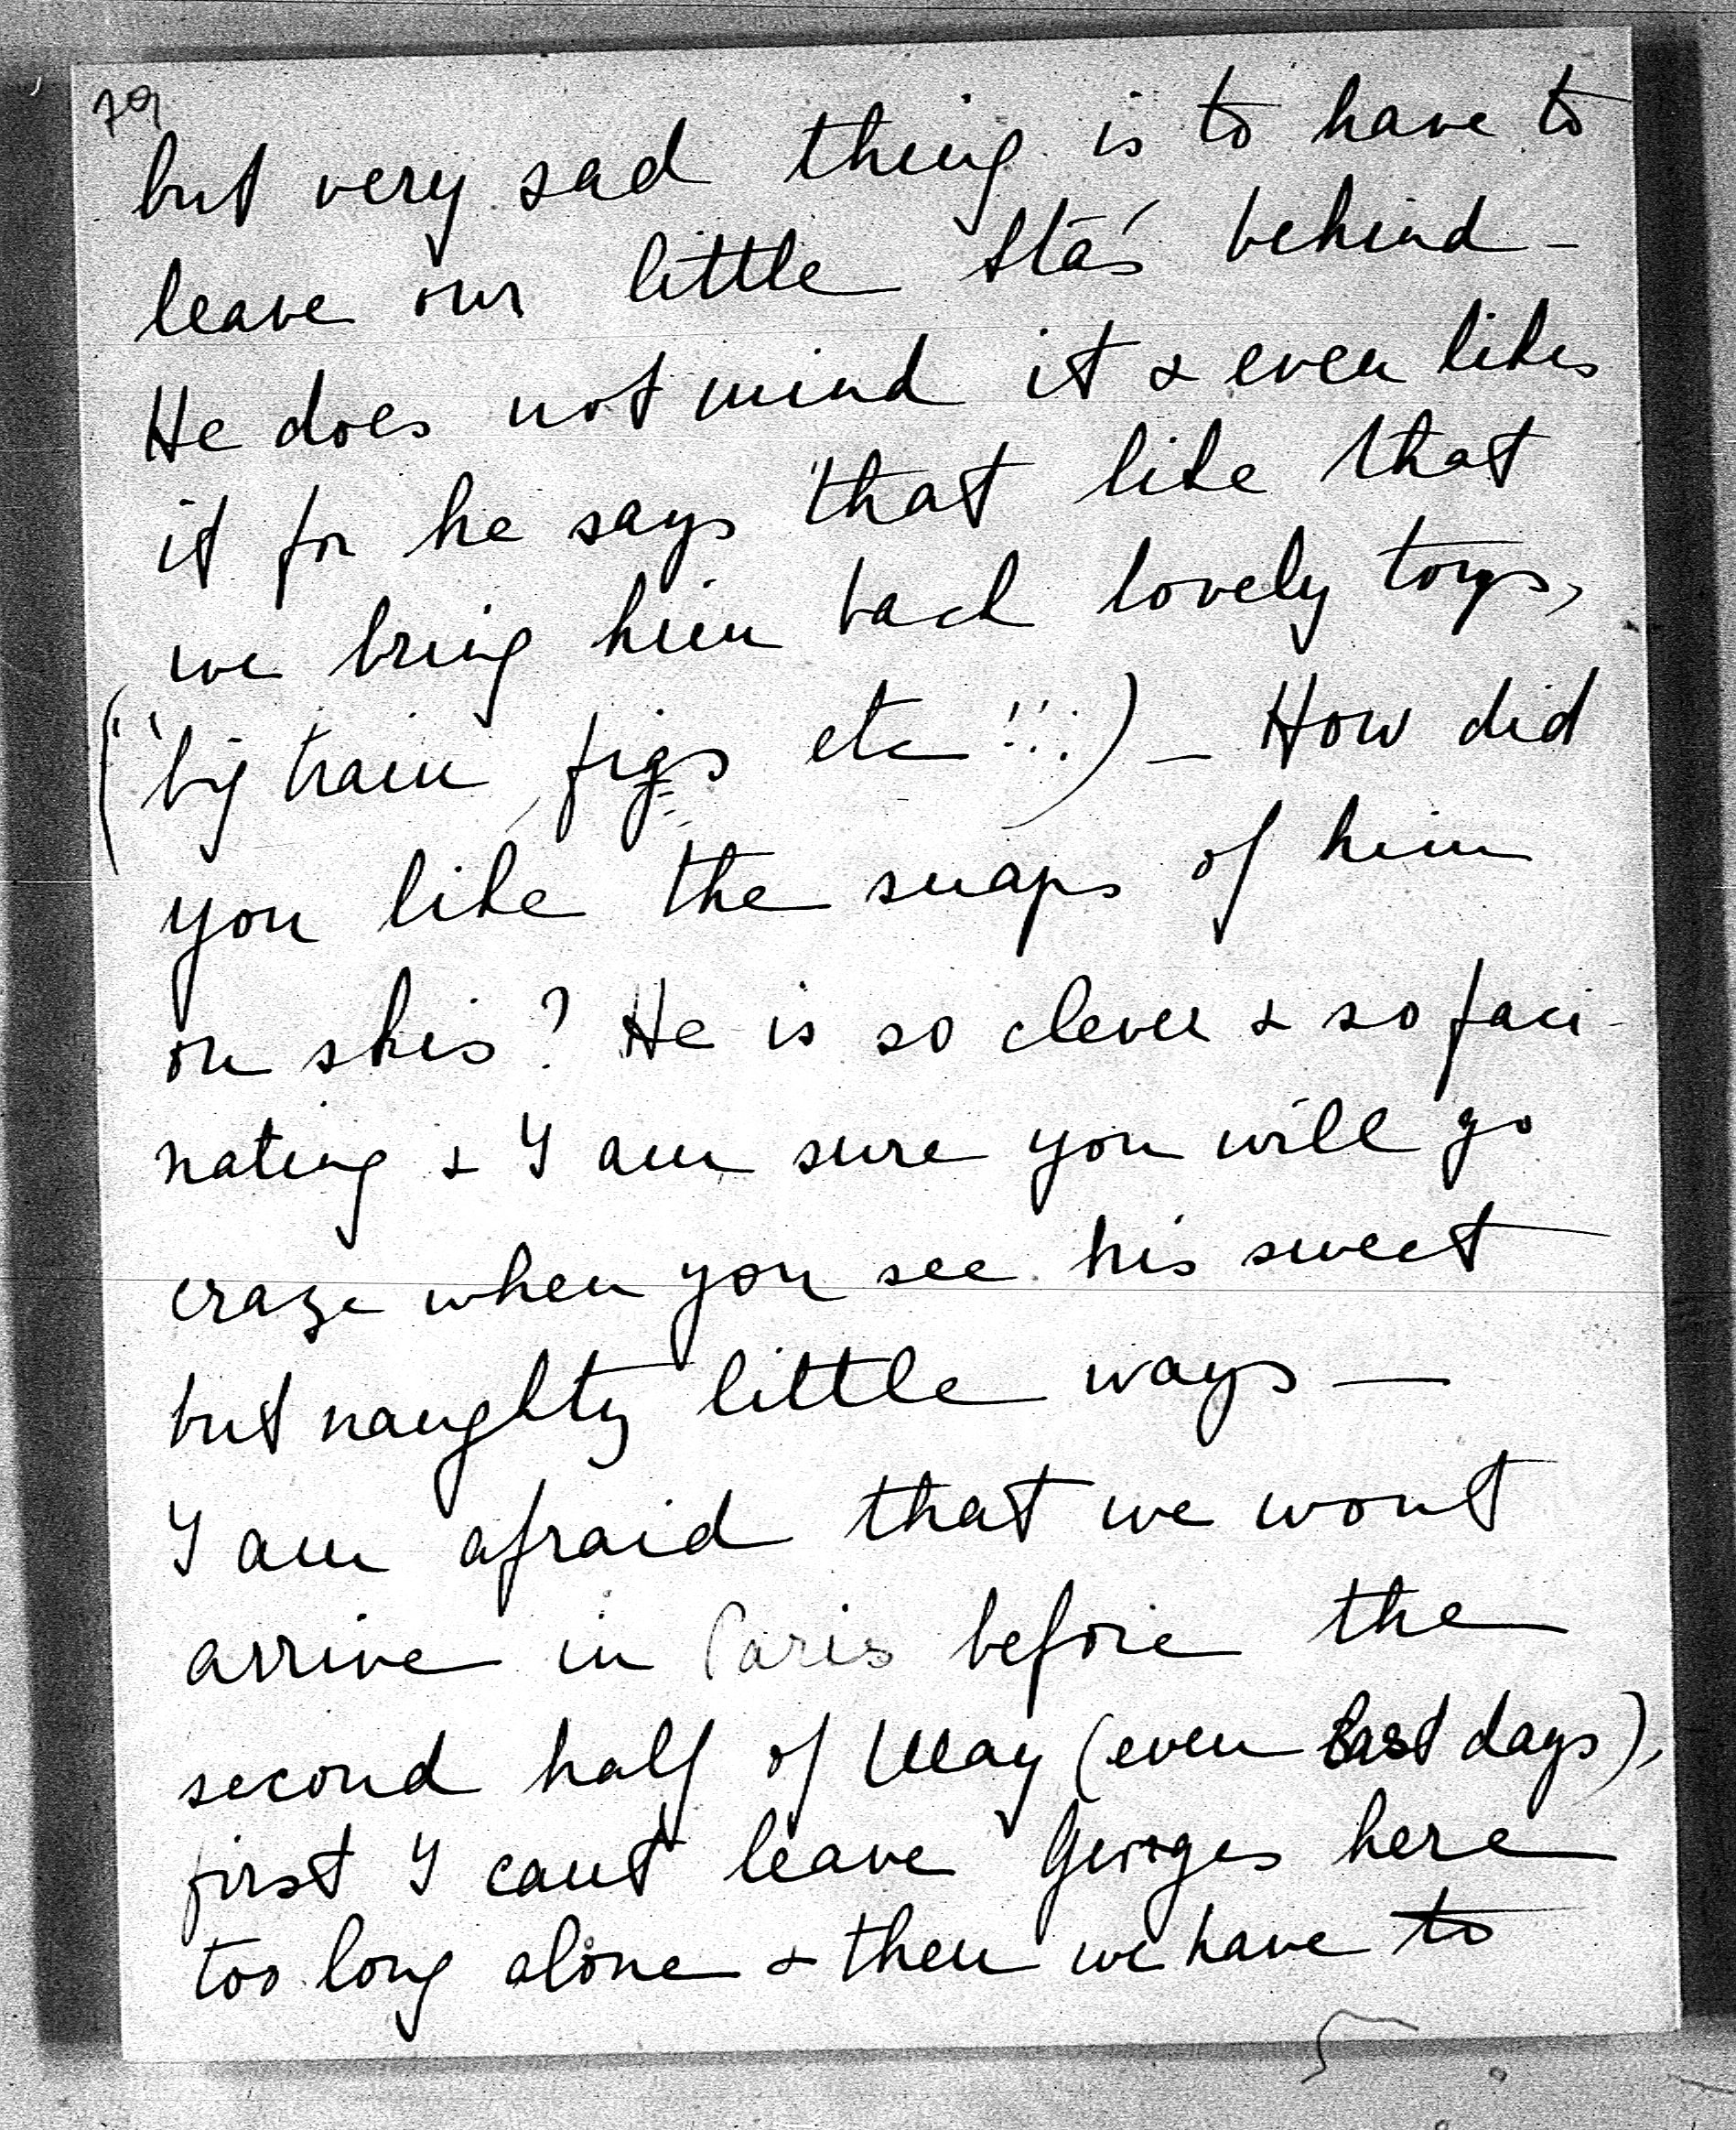 79
but very sad thing is to have to
leave our little Stás behind –
He does not mind it & even likes
it for he says that like that
we bring him back lovely toys,
("big train, figs etc!!!) – How did
you like the snaps of him
on skis? He is so clever & so faci-
nating & I am sure you will go
craze when you see his sweet
but naughty little ways —
I am afraid that we wont
arrive in Paris before the
second half of May (even last days),
first I cant leave Georges here
too long alone & then we have to